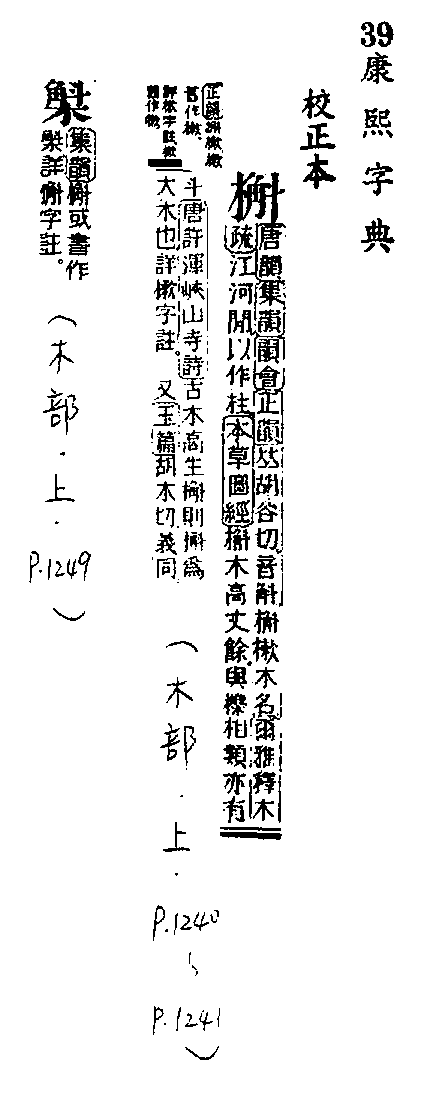 39
康熙字典
校正本
槲
唐韻集韻韻會正韻𠀤胡谷切音斛槲樕木名爾雅釋木
疏江河閒以作柱本草圖經槲木高丈餘與櫟相類亦有
斗唐許渾峽山寺詩古木高生槲則槲為
大木也詳樕字註。又玉篇胡木切義同
(木部.上.
P.1240
P.1241)
集韻槲或書作
槲字註。
(木部.上.
P.1249)